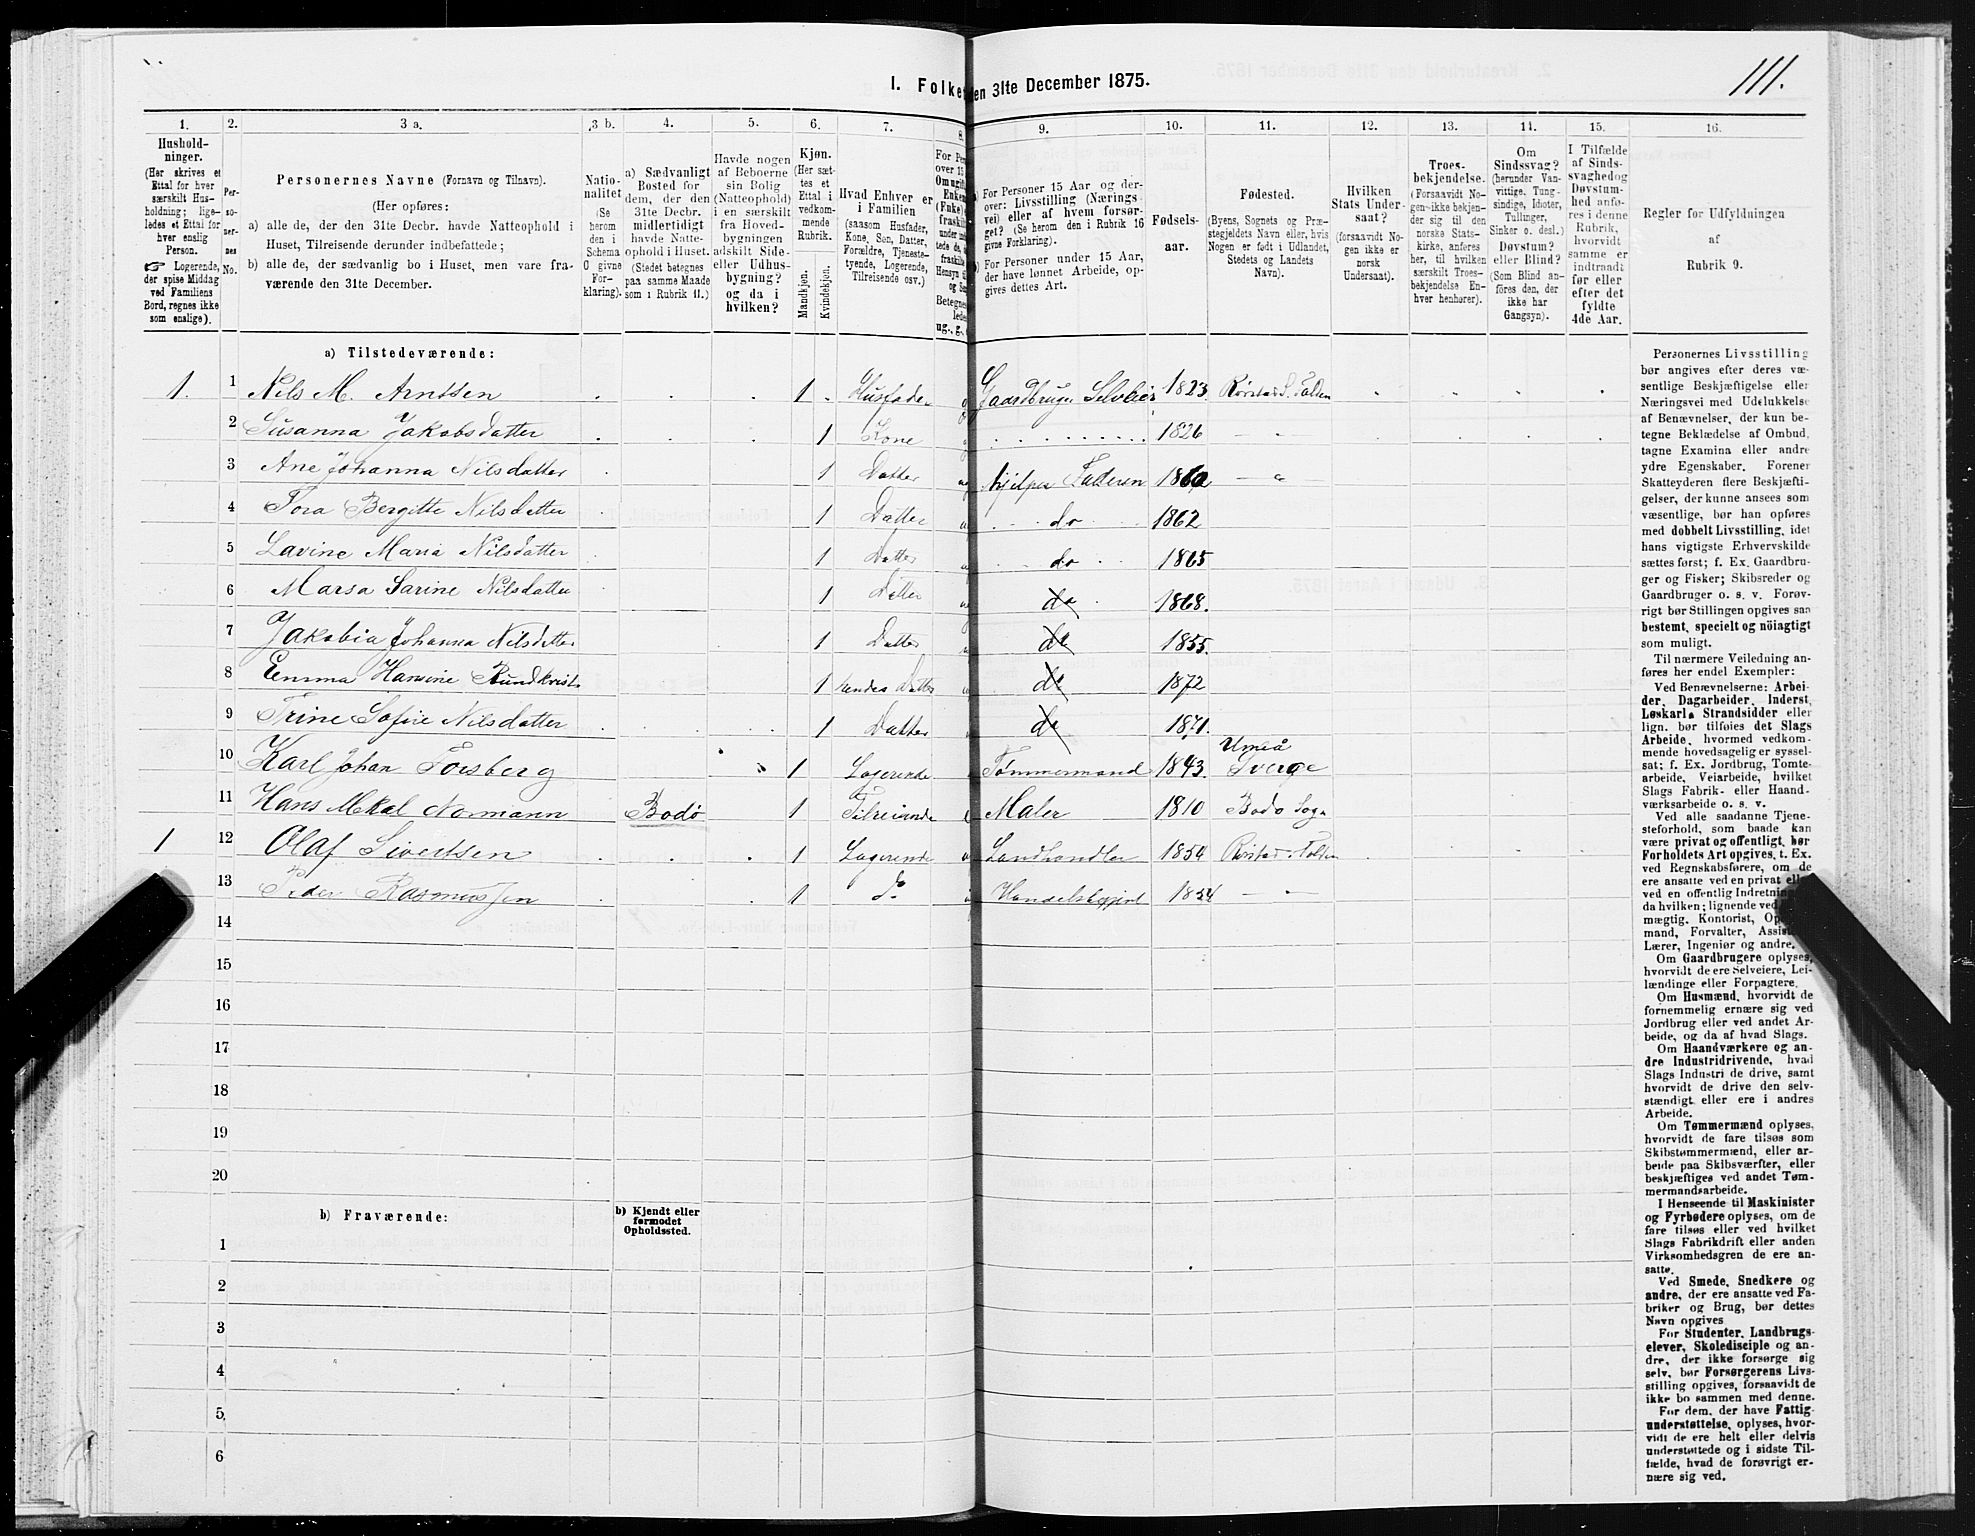 111.
1. Folke
en 31te December 1875.
1. 2. 3 a. 3 b. 4. 5. 6. 7. 8. 9. 10. 11. 12. 13. 14. 15. 16.
Hushold-
ninger.
(Her skrives et
Ettal for hver
særskilt Hus-
holdning; lige-
ledes et Ettal for
hver enslig
Person.
☞ Logerende,
der spise Middag
ved Familiens
Bord, regnes ikke
som enslige).
Per-
so-
ner-
nes
No.
Personernes Navne (Fornavn og Tilnavn).
(Her opføres:
a) alle de, der den 31te Decbr. havde Natteophold i
Huset, Tilreisende derunder indbefattede;
b) alle de, der sædvanlig bo i Huset, men vare fra-
værende den 31te December.
Natio-
nalitet
(Se
herom
den i
Schema
O givne
For-
klaring).
a) Sædvanligt
Bosted for
dem, der den
31te Decbr.
midlertidigt
havde Natte-
ophold i Huset.
(Stedet betegnes
paa samme Maade
som i Rubrik 11.)
Havde nogen
af Beboerne
sin Bolig
(Natteophold)
i en særskilt
fra Hoved-
bygningen
adskilt Side-
eller Udhus-
bygning?
og da i
hvilken?
Kjøn.
(Her sæt-
tes et
Ettal i
vedkom-
mende
Rubrik.
Mandkjøn.
Kvindekjøn.
Hvad Enhver er
i Familien
(saasom Husfader,
Kone, Søn, Datter,
Forældre, Tjeneste-
tyende, Logerende,
Tilreisende osv.)
For Per
over 15
Om ugift
Enken
(Fnke)
fraskil
under in
tede de,
fraskilt
Hensyn ti
og Se
Betegne
lede
ug., g.,
a) For Personer 15 Aar og der-
over: Livsstilling (Nærings-
vei) eller af hvem forsør-
get? (Se herom den i Rubrik 16
givne Forklaring).
b) For Personer under 15 Aar,
der have lønnet Arbeide, op-
gives dettes Art.
Fødsels-
aar.
Fødested.
(Byens, Sognets og Præ-
stegjeldets Navn eller, hvis
Nogen er født i Udlandet,
Stedets og Landets
Navn).
Hvilken
Stats Under-
saat?
(forsaavidt No-
gen ikke er
norsk
Undersaat).
Troes-
bekjendelse.
(Forsaavidt No-
gen ikke bekjen-
der sig til den
norske Stats-
kirke, anføres
her, til hvilken
særskilt Troes-
bekjendelse En-
hver henhører).
Om
Sindssvag?
(herunder Van-
vittige, Tung-
sindige, Idioter,
Tullinger,
Sinker o. desl.)
Døvstum?
eller Blind?
(Som Blind an-
føres den, der
ikke har
Gangsyn).
I Tilfælde
af Sinds-
svaghed og
Døvstum-
hed anfø-
res i denne
Rubrik,
hvorvidt
samme er
indtraadt
før eller
efter det
fyldte
4de Aar.
Regler for Udfyldningen
af
Rubrik 9.
a) Tilstedeværende:
1. 1 Nils M. Arntsen 1 Husfader Gaardbruger Selveier 1823 Rørstad S. Folden
2 Susanna Jakobsdatter 1 Kone 1826 — " —
3 Ane Johanna Nilsdatter 1 Datter Hjelper Faderen 1860 — " —
4 Tora Bergitte Nilsdatter 1 Datter do 1862
5 Lavine Maria Nilsdatter 1 Datter do 1865
6 Marsa Sarine Nilsdatter 1 Datter do 1868.
7 Jakobia Johanna Nilsdatter 1 Datter do 1855.
8 Emma Hansine Rundkvist 1 hendes Datter do 1872
9 Trine Sofie Nilsdatter 1 Datter do 1871.
10 Karl Johan Forsberg 1 Logerende Tømmermand 1843. Umeå Sverge
11 Hans Mekal Normann Bodø 1 Tilreisende Maler 1810 Bodø Sogn
1 12 Olaf Sivertsen 1 Logerende Landhandler 1854 Rørstad S. Folden
13 Peder Rasmussen 1 do Handelsbetjent 1854 — " —
14
15
16
17
18
19
20
b) Fraværende:
b) Kjendt eller
formodet
Opholdssted.
1
2
3
4
5
6
Personernes Livsstilling
bør angives efter deres væ-
sentlige Beskjæftigelse eller
Næringsvei med Udelukkelse
af Benævnelser, der kun be-
tegne Beklædelse af Ombud,
tagne Examina eller andre
ydre Egenskaber. Forener
Skatteyderen flere Beskjæfti-
gelser, der kunne ansees som
væsentlige, bør han opføres
med dobbelt Livsstilling, idet
hans vigtigste Erhvervskilde
sættes først; f. Ex. Gaardbru-
ger og Fisker; Skibsreder og
Gaardbruger o. s. v. Forøv-
rigt bør Stillingen opgives saa
bestemt, specielt og nöiagtigt
som muligt.
Til nærmere Veiledning an-
føres her endel Exempler:
Ved Benævnelserne: Arbei-
der, Dagarbeider, Inderst,
Løskarl, Strandsidder eller
lign. bør tilføies det Slags
Arbeide, hvormed vedkom-
mende hovedsagelig er syssel-
sat; f. Ex. Jordbrug, Tomte-
arbeide, Veiarbeide, hvilket
Slags Fabrik- eller Haand-
værksarbeide o. s. v.
Ved alle saadanne Tjene-
steforhold, som baade kan
være privat og offentligt, bør
Forholdets Art opgives, t. Ex.
ved Regnskabsførere, om de
ere ansatte ved en privat elle
ved en offentlig Indretnin
da hvilken; lignende ved
mægtig, Kontorist, Op
mand, Forvalter, Assis
Lærer, Ingeniør og andre.
Om Gaardbrugere oplyses,
hvorvidt de ere Selveiere, Lei-
lændinge eller Forpagtere.
Om Husmænd, hvorvidt de
fornemmelig ernære sig ved
Jordbrug eller ved andet Ar-
beide, og da af hvad Slags.
Om Haandværkere og an-
dre Industridrivende, hvad
Slags Industri de drive, samt
hvorvidt de drive den selv-
stændigt eller ere i andres
Arbeide.
Om Tømmermænd oplyses,
hvorvidt de fare tilsøs som
Skibstømmermænd, eller ar-
beide paa Skibsværfter, eller
beskjæftiges ved andet Tøm-
mermandsarbeide.
I Henseende til Maskinister
og Fyrbødere oplyses, om de
fare tilsøs eller ved hvilket
Slags Fabrikdrift eller anden
Virksomhedsgren de ere an-
satte.
Ved Smede, Snedkere og
andre, der ere ansatte ved Fa-
briker og Brug, bør dettes
Navn opgives
For Studenter, Landbrugs-
elever, Skoledisciple og an-
dre, der ikke forsørge sig
selv, bør Forsørgerens Livs-
stilling opgives, forsaavidt de
ikke bo sammen med denne.
For dem, der have Fattig-
understøttelse, oplyses, hvor-
vidt de ere helt eller delvis
understøttede og i sidste Til-
fælde, hvad de forøvrigt er-
nære sig ved.